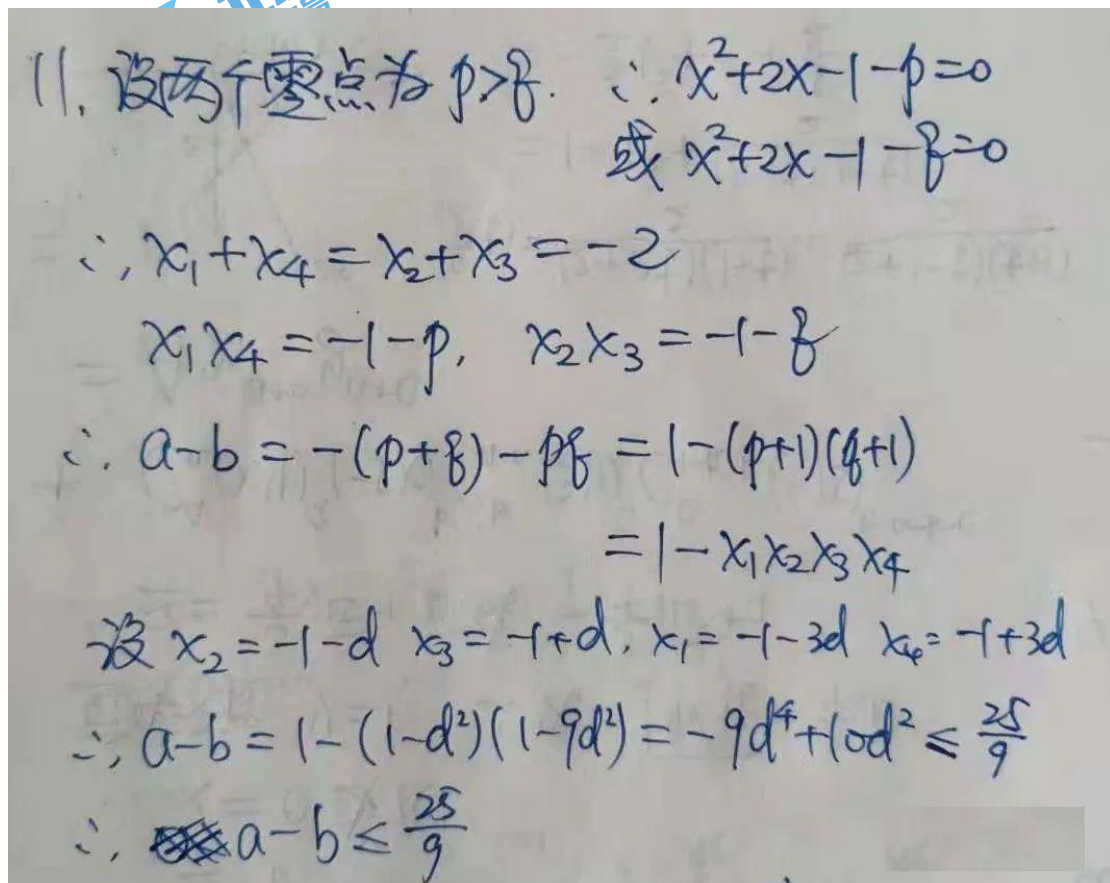 11. 设两个零点为 p>q. ∴ x²+2x-1-p=0
或 x²+2x-1-q=0
∴, x₁+x₄=x₂+x₃=-2
x₁x₄=-1-p, x₂x₃=-1-q
∴. a-b=-(p+q)-pq=1-(p+1)(q+1)
=1-x₁x₂x₃x₄
设 x₂=-1-d x₃=-1+d, x₁=-1-3d x₄=-1+3d
∴, a-b=1-(1-d²)(1-9d²)=-9d⁴+10d²≤25/9
∴, a-b≤25/9